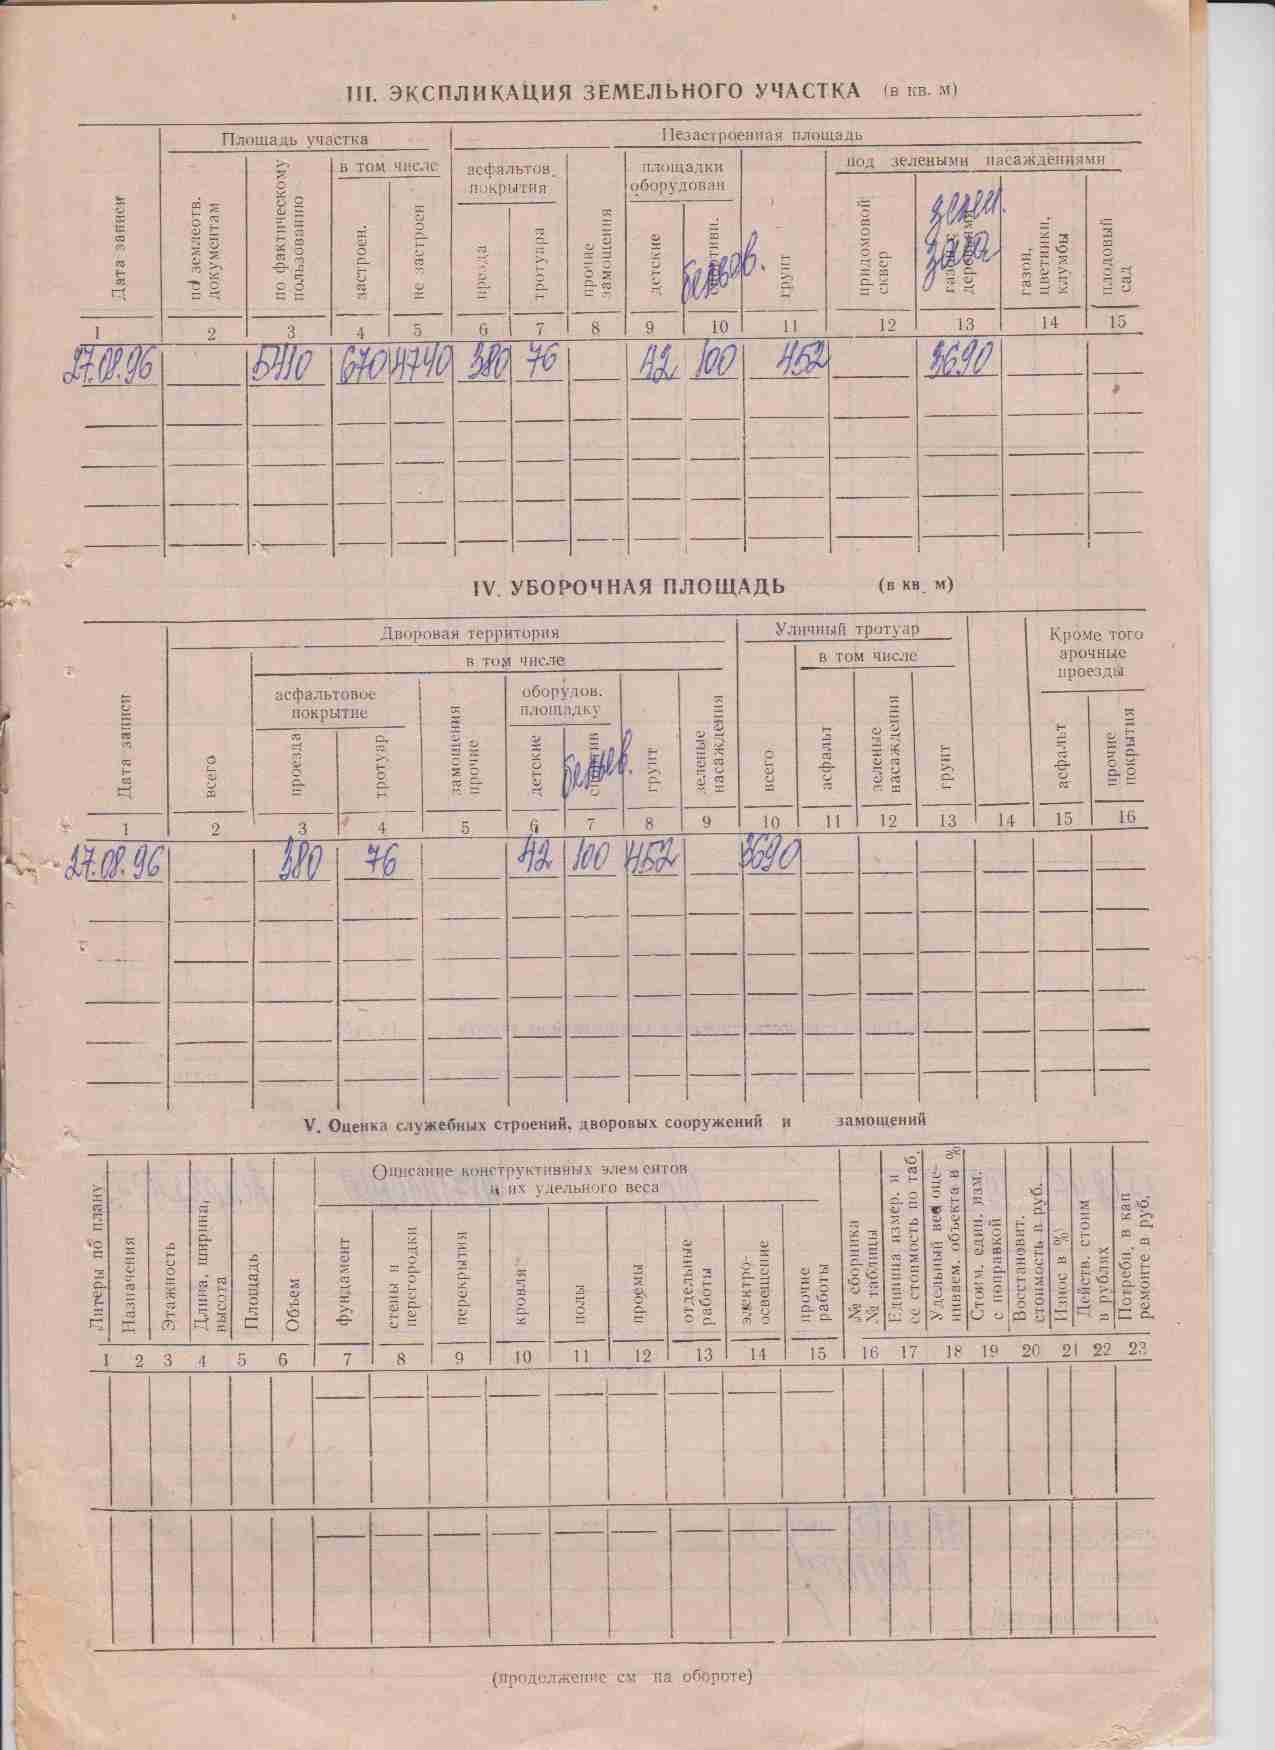 III. ЭКСПЛИКАЦИЯ ЗЕМЕЛЬНОГО УЧАСТКА (в кв. м)
Дата записи
Площадь участка
по землеотв. документам
по фактическому пользованию
в том числе
застроен.
не застроен
Незастроенная площадь
асфальтов. покрытия
проезда
тротуара
прочие замощения
площадки оборудован
детские
спортивн.
бельев.
грунт
под зелеными насаждениями
придомовой сквер
газоны с деревьями
зелен.
газон, цветники, клумбы
плодовый сад
1 2 3 4 5 6 7 8 9 10 11 12 13 14 15
27.08.96 5410 670 4740 380 76 42 100 452 3690
IV. УБОРОЧНАЯ ПЛОЩАДЬ (в кв. м)
Дата записи
Дворовая территория
всего
в том числе
асфальтовое покрытие
проезда
тротуар
замощения прочие
оборудов. площадку
детские
спортив
бельев.
грунт
зеленые насаждения
Уличный тротуар
всего
в том числе
асфальт
зеленые насаждения
грунт
Кроме того арочные проезды
асфальт
прочие покрытия
1 2 3 4 5 6 7 8 9 10 11 12 13 14 15 16
27.08.96 380 76 42 100 452 3690
V. Оценка служебных строений, дворовых сооружений и замощений
Литеры по плану
Назначения
Этажность
Длина, ширина, высота
Площадь
Объем
Описание конструктивных элементов и их удельного веса
фундамент
стены и перегородки
перекрытия
кровля
полы
проемы
отдельные работы
электро-освещение
прочие работы
№ сборника № таблицы
Единица измер. и ее стоимость по таб.
Удельный вес оце-ниваем. объекта в %
Стоим. един. изм. с поправкой
Восстановит. стоимость в руб.
Износ в %
Действ. стоим в рублях
Потребн. в кап ремонте в руб.
1 2 3 4 5 6 7 8 9 10 11 12 13 14 15 16 17 18 19 20 21 22 23
(продолжение см на обороте)